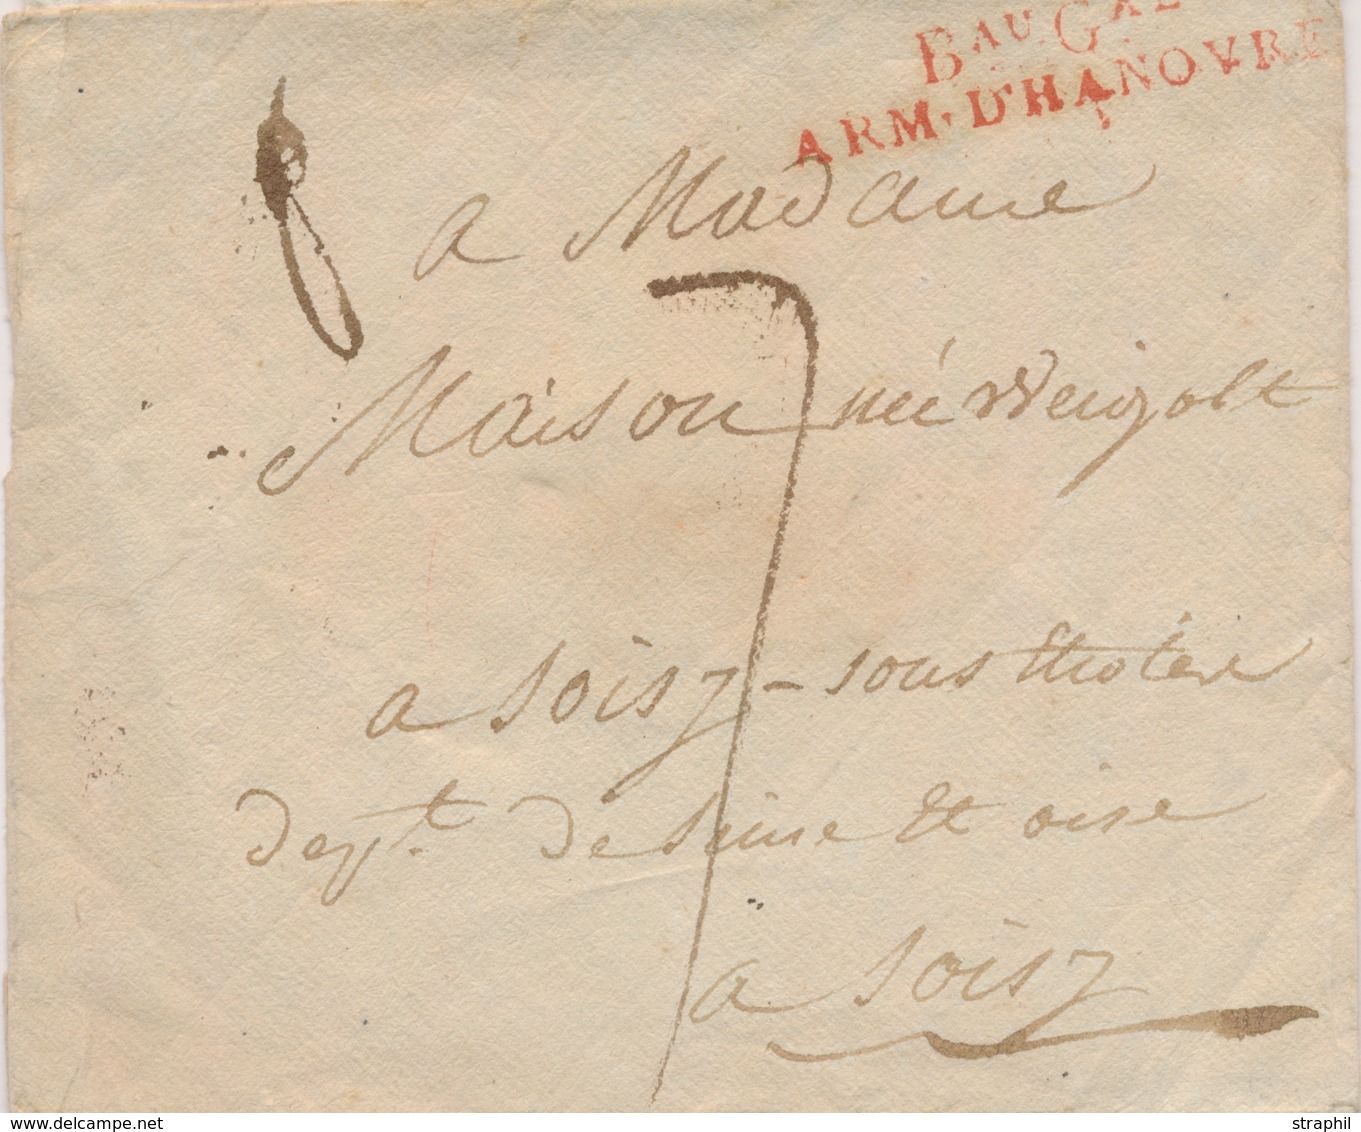 BAU GAL
ARM. D'HANOVRE
a Madame
Maison née Weizolt
7
a Soisy - sous Etiolere
dept. de Seine Et oise
a Soisy
www.delcampe.net
straphil